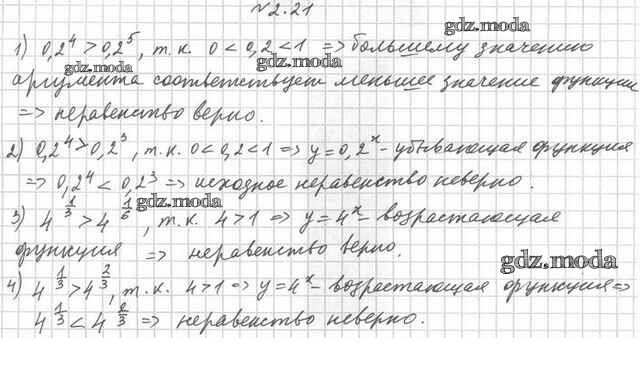 №2.21
gdz.moda
1) 0,2⁴ > 0,2⁵, т.к. 0 < 0,2 < 1 => большему значению
gdz.moda gdz.moda
аргумента соответствует меньшее значение функции
=> неравенство верно.
2) 0,2⁴ > 0,2³, т.к. 0 < 0,2 < 1 => y = 0,2ˣ - убывающая функция
=> 0,2⁴ < 0,2³ => исходное неравенство неверно.
gdz.moda
3) 4^(1/3) > 4^(1/6), т.к. 4 > 1 => y = 4ˣ - возрастающая
функция => неравенство верно.
gdz.moda
4) 4^(1/3) > 4^(2/3), т.к. 4 > 1 => y = 4ˣ - возрастающая функция =>
4^(1/3) < 4^(2/3) => неравенство неверно.